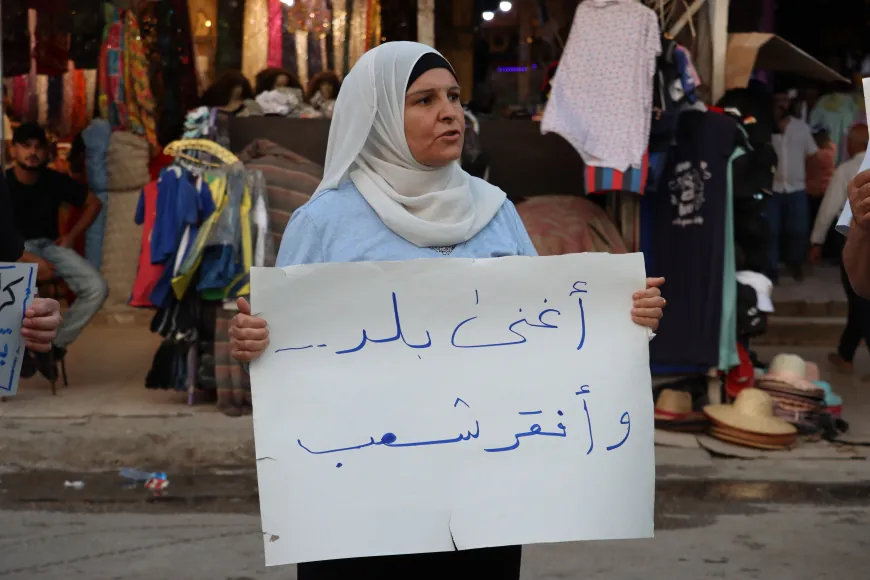 أغنىٰ بلد ..
و أفقر شعب